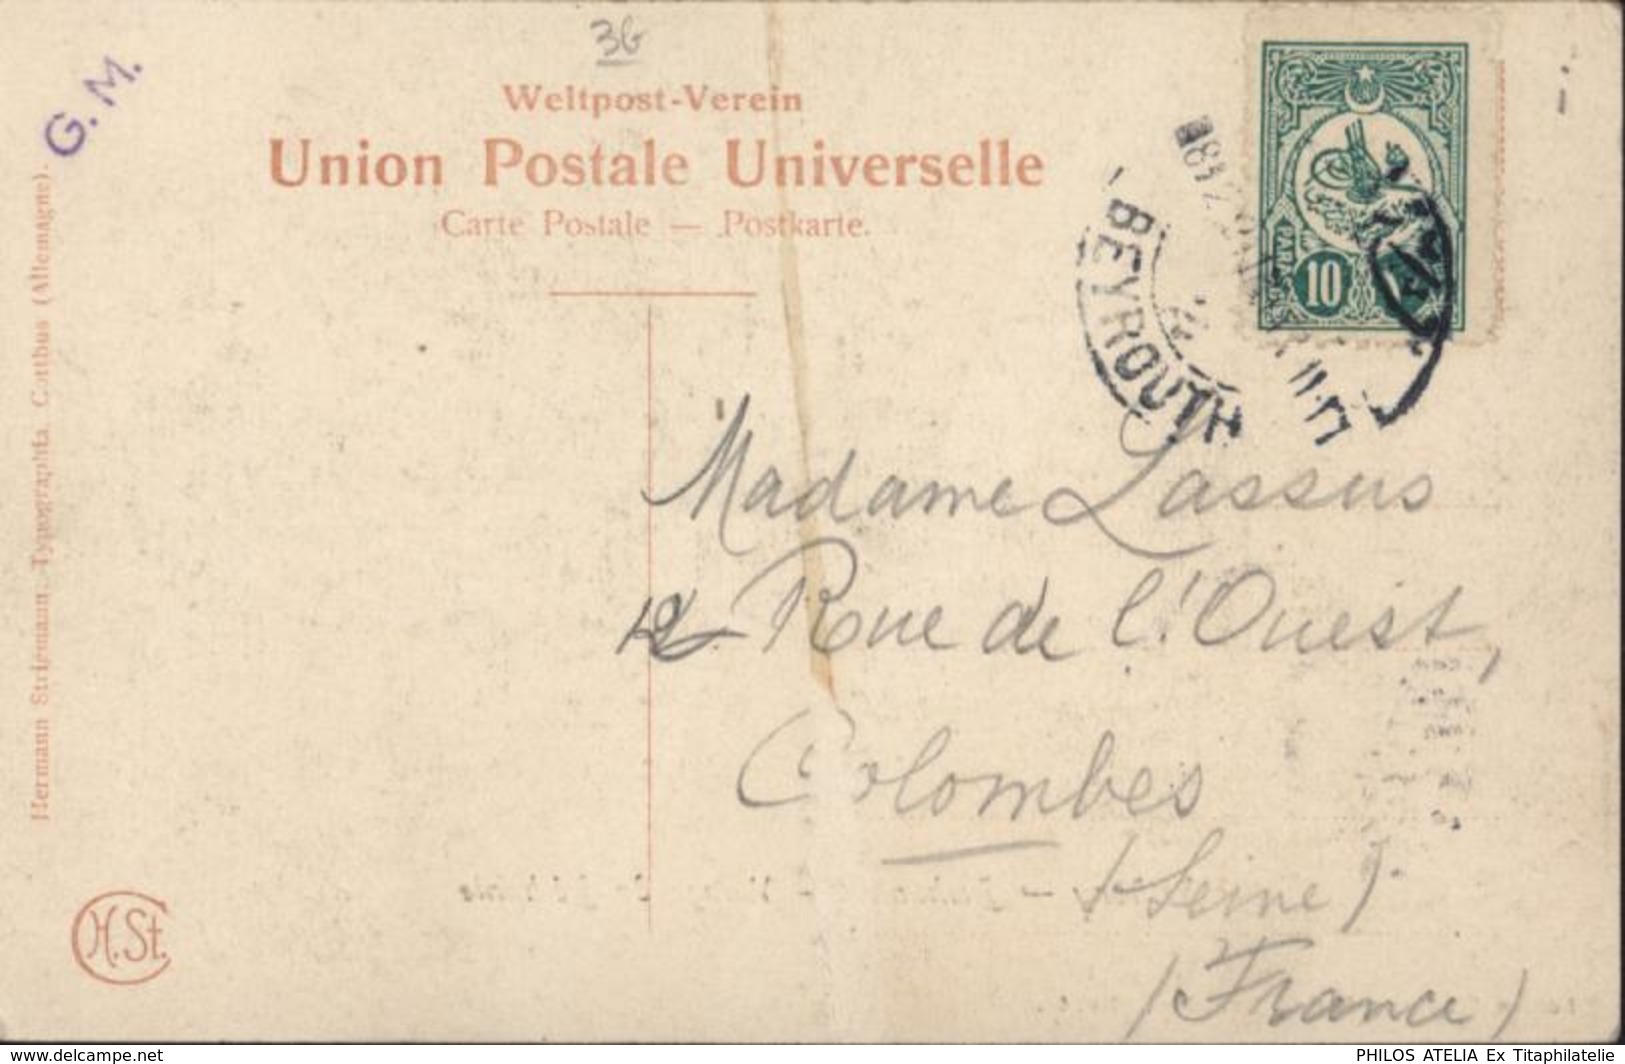 3G
G. M.
Weltpost-Verein
Union Postale Universelle
Carte Postale — Postkarte.
PARAS
10
BEYROUTH
Hermann Striemann, Typographia, Cottbus (Allemagne).
Madame Lassus
12 Rue de l'Ouest,
Colombes
(Seine)
(France)
H.St.
www.delcampe.net
PHILOS ATELIA Ex Titaphilatelie